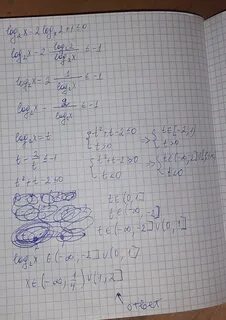 log₂x - 2log_x 2 + 1 ≤ 0
log₂x - 2 · log₂2/log₂x ≤ -1
log₂x - 2 · 1/log₂x ≤ -1
log₂x - 2/log₂x ≤ -1
log₂x = t
t - 2/t ≤ -1
t² + t - 2 ≤ 0
{ t² + t - 2 ≤ 0
t > 0
=> { t ∈ [-2, 1]
t > 0
{ t² + t - 2 ≥ 0
t < 0
t < 0
t ∈ (0, 1]
t ∈ (-∞, -2]
t ∈ (-∞, -2] ∪ (0, 1]
log₂x ∈ (-∞, -2] ∪ (0, 1]
x ∈ (-∞, 1/4] ∪ (1, 2]
ответ